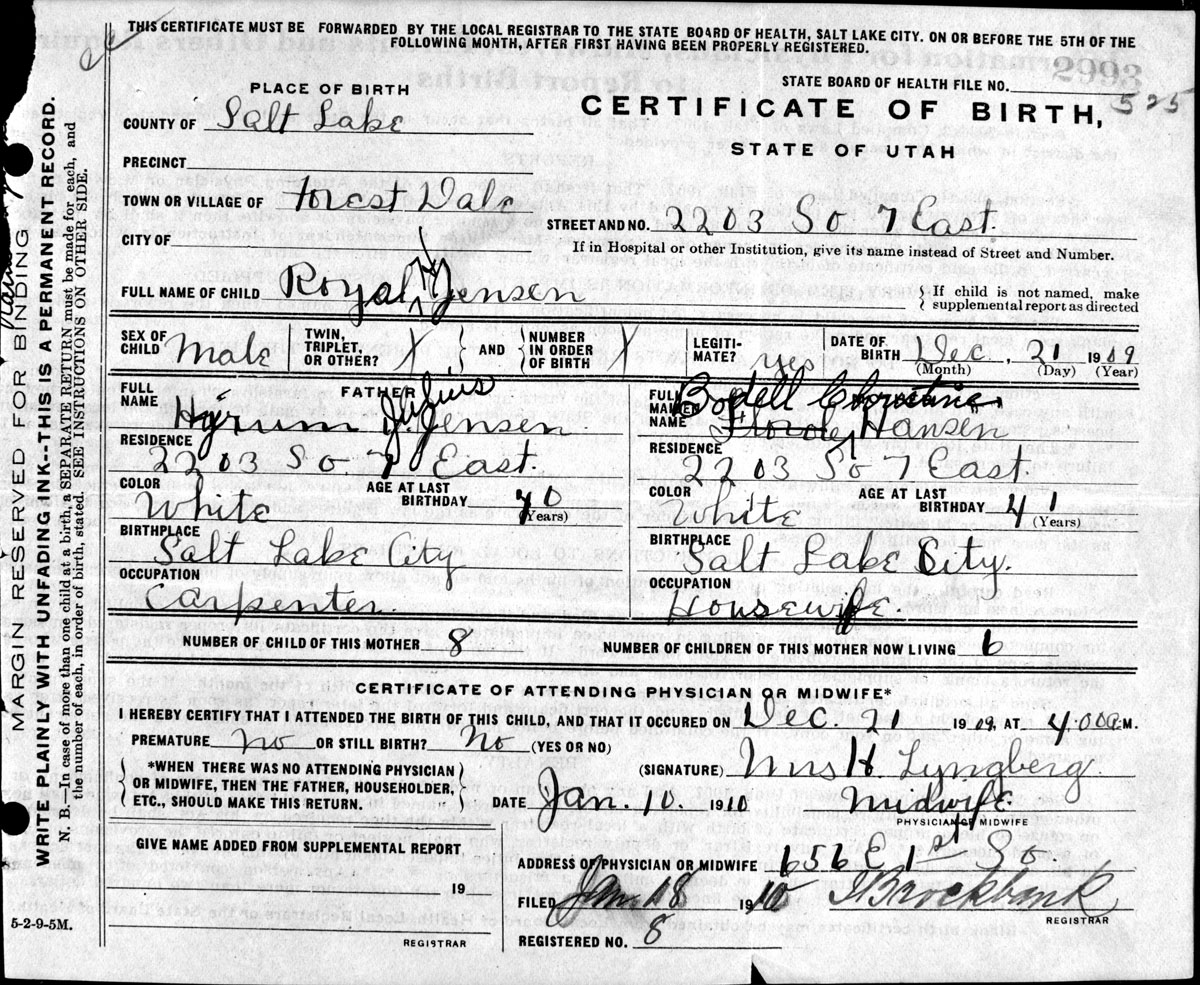 THIS CERTIFICATE MUST BE FORWARDED BY THE LOCAL REGISTRAR TO THE STATE BOARD OF HEALTH, SALT LAKE CITY. ON OR BEFORE THE 5TH OF THE
FOLLOWING MONTH, AFTER FIRST HAVING BEEN PROPERLY REGISTERED.
2993
PLACE OF BIRTH
STATE BOARD OF HEALTH FILE NO. 525
COUNTY OF Salt Lake
CERTIFICATE OF BIRTH,
STATE OF UTAH
PRECINCT
TOWN OR VILLAGE OF Forest Dale
STREET AND NO. 2203 So 7 East.
CITY OF
If in Hospital or other Institution, give its name instead of Street and Number.
FULL NAME OF CHILD Royal H Jensen
If child is not named, make
supplemental report as directed
SEX OF CHILD Male TWIN, TRIPLET, OR OTHER? X AND NUMBER IN ORDER OF BIRTH X LEGITIMATE? yes DATE OF BIRTH Dec. 21 1909
(Month) (Day) (Year)
FATHER
FULL NAME Hyrum Julius Jensen
FULL MAIDEN NAME Bodell Christina Hansen
RESIDENCE 2203 So 7 East.
RESIDENCE 2203 So 7 East.
COLOR White AGE AT LAST BIRTHDAY 40 (Years)
COLOR White AGE AT LAST BIRTHDAY 41 (Years)
BIRTHPLACE Salt Lake City
BIRTHPLACE Salt Lake City.
OCCUPATION Carpenter.
OCCUPATION Housewife
NUMBER OF CHILD OF THIS MOTHER 8 NUMBER OF CHILDREN OF THIS MOTHER NOW LIVING 6
CERTIFICATE OF ATTENDING PHYSICIAN OR MIDWIFE*
I HEREBY CERTIFY THAT I ATTENDED THE BIRTH OF THIS CHILD, AND THAT IT OCCURED ON Dec. 2 1909 AT 4:00 P.M.
PREMATURE No OR STILL BIRTH? No (YES OR NO)
*WHEN THERE WAS NO ATTENDING PHYSICIAN
OR MIDWIFE, THEN THE FATHER, HOUSEHOLDER,
ETC., SHOULD MAKE THIS RETURN.
(SIGNATURE) Mrs H. Lyngberg.
DATE Jan. 10. 1910 Midwife
PHYSICIAN OR MIDWIFE
GIVE NAME ADDED FROM SUPPLEMENTAL REPORT
19
REGISTRAR
ADDRESS OF PHYSICIAN OR MIDWIFE 656 E 1st So.
FILED Jan 18 1910 Brockbank
REGISTRAR
REGISTERED NO. 8
5-2-9-5M.
MARGIN RESERVED FOR BINDING
WRITE PLAINLY WITH UNFADING INK--THIS IS A PERMANENT RECORD.
N. B.—In case of more than one child at a birth, a SEPARATE RETURN must be made for each, and
the number of each, in order of birth, stated. SEE INSTRUCTIONS ON OTHER SIDE.